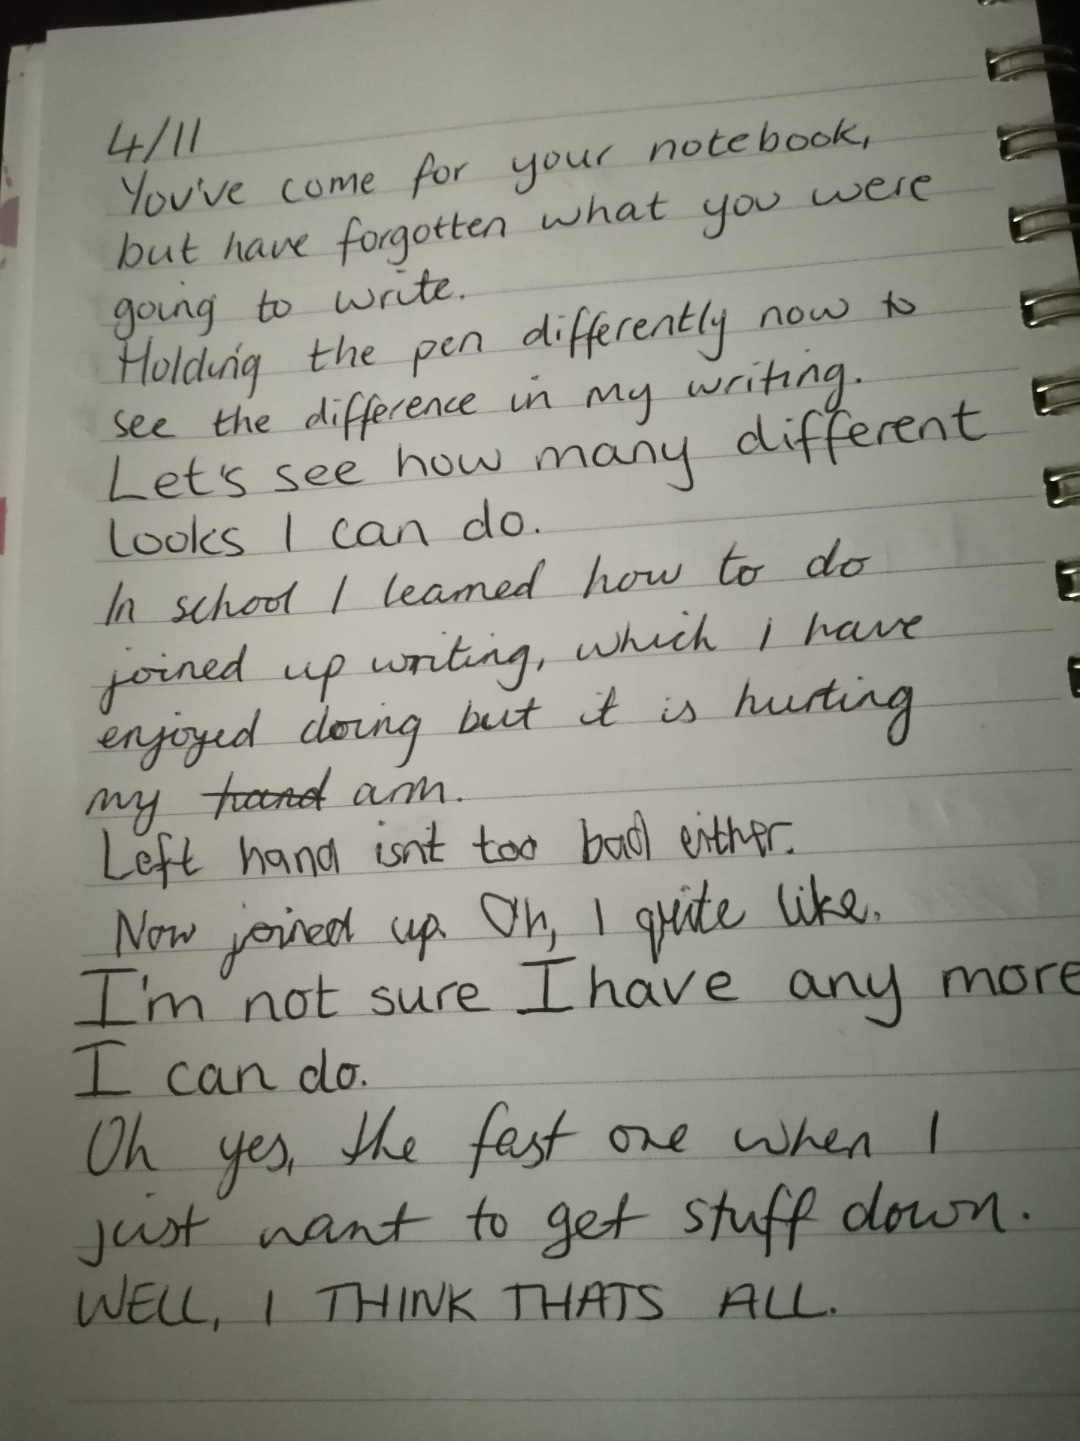 4/11
You've come for your notebook,
but have forgotten what you were
going to write.
Holding the pen differently now to
see the difference in my writing.
Let's see how many different
looks I can do.
In school I learned how to do
joined up writing, which I have
enjoyed doing but it is hurting
my hand arm.
Left hand isn't too bad either.
Now joined up. Oh, I quite like.
I'm not sure I have any more
I can do.
Oh yes, the fast one when I
just want to get stuff down.
WELL, I THINK THATS ALL.